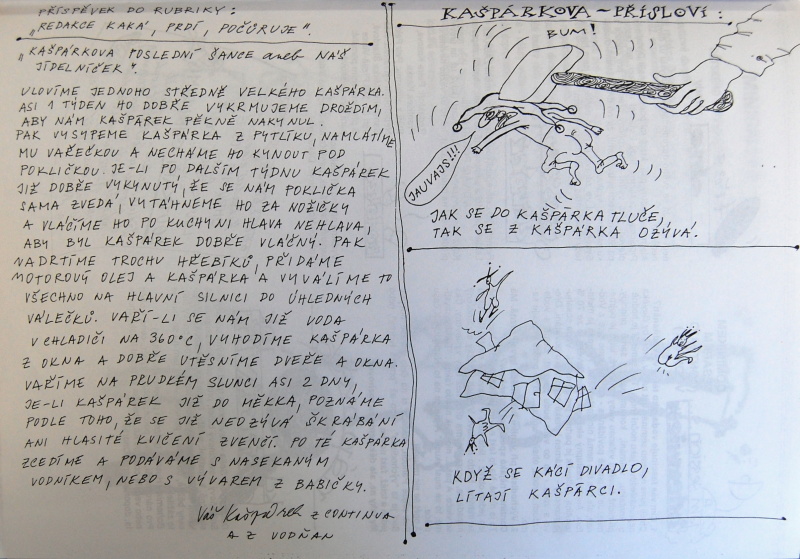 PŘÍSPĚVEK DO RUBRIKY:
„REDARCE KAKÁ, PRDÍ, POČŮRUJE".
„KAŠPÁRKOVA POSLEDNÍ ŠANCE aneb NÁŠ
JÍDELNÍČEK".
ULOVÍME JEDNOHO STŘEDNĚ VELKÉHO KAŠPÁRKA.
ASI 1 TÝDEN HO DOBŘE VYKRMUJEME DROŽDÍM,
ABY NÁM KAŠPÁREK PĚKNĚ NAKYNUL.
PAK VYSYPEME KAŠPÁRKA Z PYTLÍKU, NAMLÁTÍME
MU VAŘEČKOU A NECHÁME HO KYNOUT POD
POKLIČKOU. JE-LI PO DALŠÍM TÝDNU KAŠPÁREK
JIŽ DOBŘE VYKYNUTÝ, ŽE SE NÁM POKLIČKA
SAMA ZVEDÁ, VYTÁHNEME HO ZA NOŽIČKY
A VLÁČÍME HO PO KUCHYNI HLAVA NEHLAVA,
ABY BYL KAŠPÁREK DOBŘE VLÁČNÝ. PAK
NADRTÍME TROCHU HŘEBÍKŮ, PŘIDÁME
MOTOROVÝ OLEJ A KAŠPÁRKA A VYVÁLÍME TO
VŠECHNO NA HLAVNÍ SILNICI DO ÚHLEDNÝCH
VÁLEČKŮ. VAŘÍ-LI SE NÁM JIŽ VODA
V CHLADIČI NA 360°C, VYHODÍME KAŠPÁRKA
Z OKNA A DOBŘE UTĚSNÍME DVEŘE A OKNA.
VAŘÍME NA PRUDKÉM SLUNCI ASI 2 DNY,
JE-LI KAŠPÁREK JIŽ DO MĚKKA, POZNÁME
PODLE TOHO, ŽE SE JIŽ NEOZÝVÁ ŠKRÁBÁNÍ
ANI HLASITÉ KVIČENÍ ZVENČÍ. PO TÉ KAŠPÁRKA
ZCEDÍME A PODÁVÁME S NASEKANÝM
VODNÍKEM, NEBO S VÝVAREM Z BABIČKY.
Váš Kašpárek Z CONTINUA
A Z VODŇAN
KAŠPÁRKOVA – PŘÍSLOVÍ:
BUM!
JAUVAJS!!!
JAK SE DO KAŠPÁRKA TLUČE,
TAK SE Z KAŠPÁRKA OZÝVÁ.
KDYŽ SE KÁCÍ DIVADLO,
LÍTAJÍ KAŠPÁRCI.